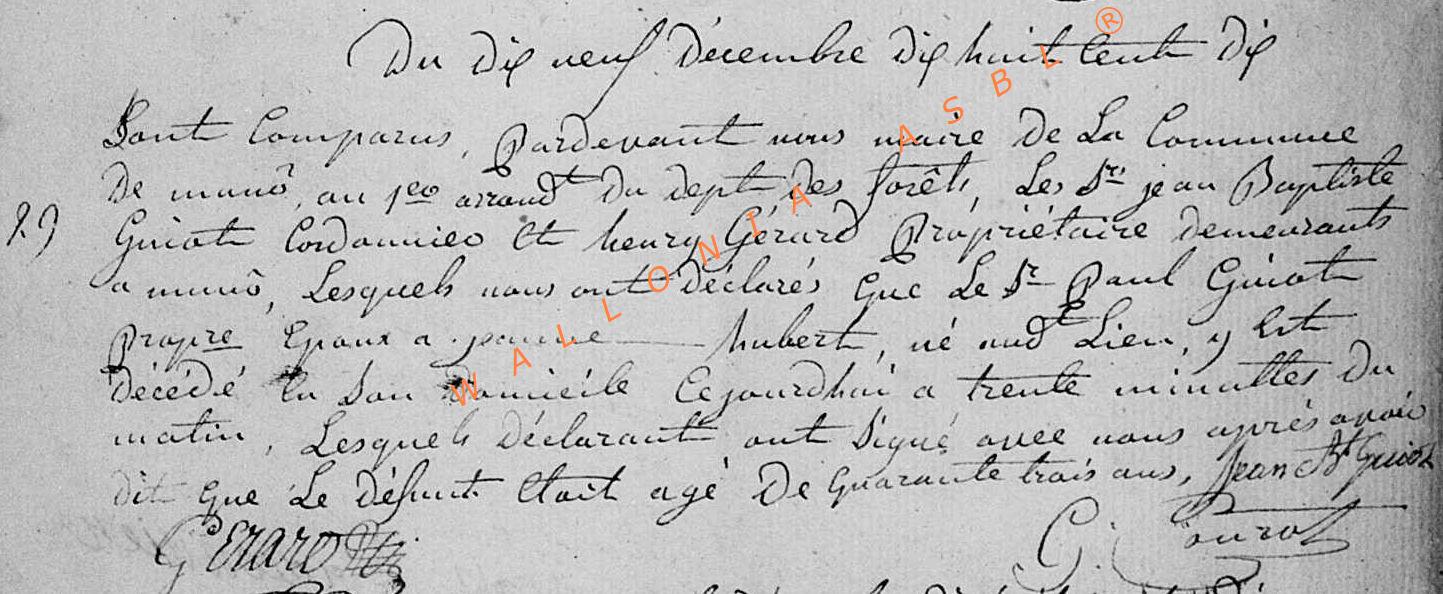 Du dix neuf décembre dix huit cent dix
Sont Comparus, Pardevant nous maire De La Commune
De munô, au 1er arrondt Du dept des forêts, Les Srs jean Baptiste
29 Guiot Cordonnier Et henry Gérard Propriétaire demeurants
a munô, Lesquels nous ont déclarés que Le Sr Paul Guiot
propre Epoux a jeanne hubert, né audt Lieu, y Est
décédé En Son domicile Cejourdhui a trente minuttes Du
matin, Lesquels Déclarants ont Signé avec nous après avoir
dit que Le Défunt Etoit agé De quarante trois ans, Jean Bt Guiot
GERARD
WALLONIA ASBL ®